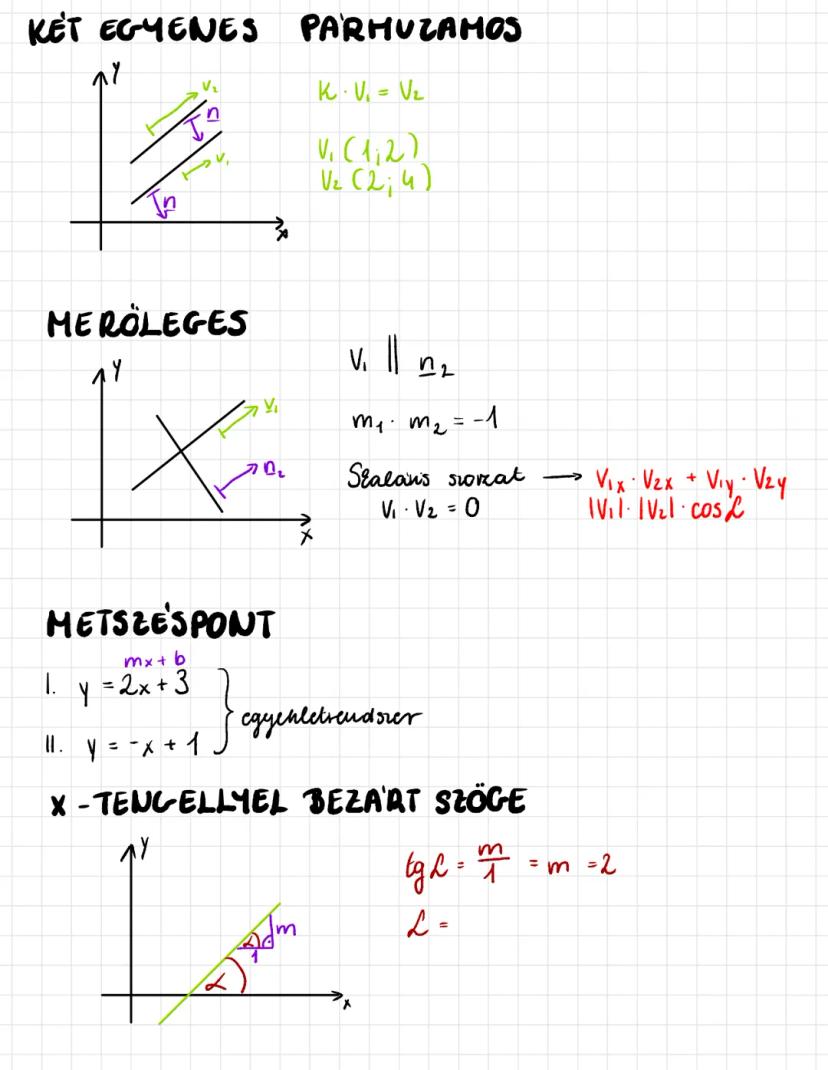 KÉT EGYENES PÁRHUZAMOS
y
v₂
n
v₁
n
x
K · v₁ = v₂
v₁ (1;2)
v₂ (2;4)
MERŐLEGES
y
v₁
n₂
x
v₁ || n₂
m₁ · m₂ = -1
Skaláris szorzat → v₁ₓ · v₂ₓ + v₁y · v₂y
v₁ · v₂ = 0
|v₁| · |v₂| · cos α
METSZÉSPONT
mx + b
I. y = 2x + 3
egyenletrendszer
II. y = -x + 1
X - TENGELLYEL BEZÁRT SZÖGE
y
α
m
1
α
x
tg α = m/1 = m = 2
α =